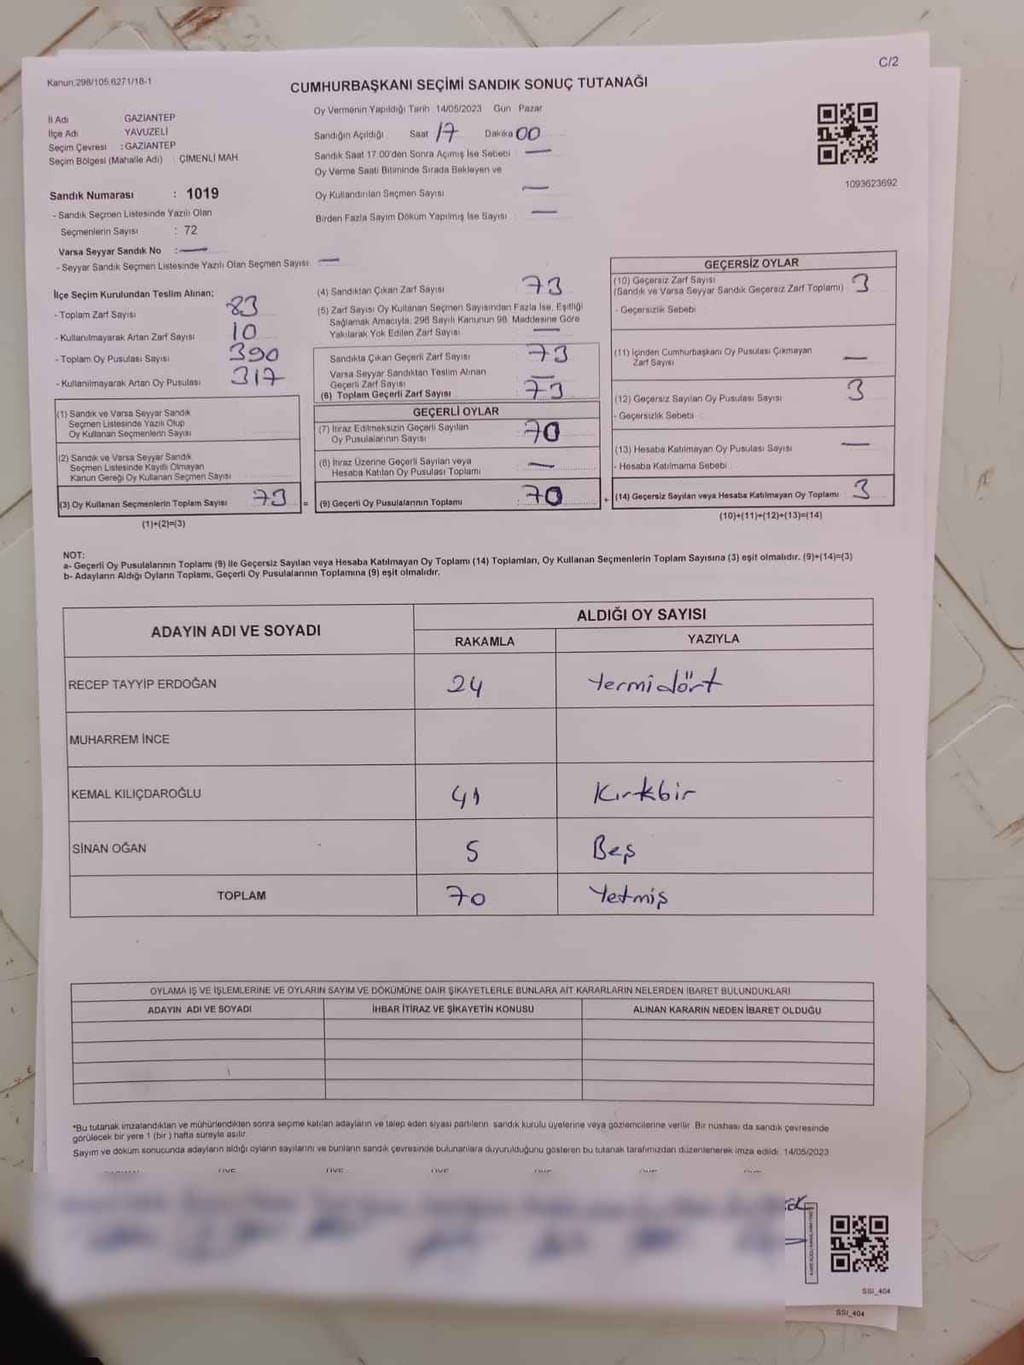 C/2
Kanun:298/105,6271/18-1
CUMHURBAŞKANI SEÇİMİ SANDIK SONUÇ TUTANAĞI
İl Adı GAZİANTEP
İlçe Adı YAVUZELİ
Seçim Çevresi : GAZİANTEP
Seçim Bölgesi (Mahalle Adı) : ÇİMENLİ MAH
Oy Vermenin Yapıldığı Tarih 14/05/2023 Gün Pazar
Sandığın Açıldığı Saat 17 Dakika 00
Sandık Saat 17.00'den Sonra Açımış İse Sebebi —
Oy Verme Saati Bitiminde Sırada Bekleyen ve
Oy Kullandırılan Seçmen Sayısı —
Birden Fazla Sayım Döküm Yapılmış İse Sayısı —
1093623692
Sandık Numarası : 1019
- Sandık Seçmen Listesinde Yazılı Olan
Seçmenlerin Sayısı : 72
Varsa Seyyar Sandık No : —
- Seyyar Sandık Seçmen Listesinde Yazılı Olan Seçmen Sayısı —
İlçe Seçim Kurulundan Teslim Alınan;
- Toplam Zarf Sayısı 83
- Kullanılmayarak Artan Zarf Sayısı 10
- Toplam Oy Pusulası Sayısı 390
- Kullanılmayarak Artan Oy Pusulası 317
(1) Sandık ve Varsa Seyyar Sandık
Seçmen Listesinde Yazılı Olup
Oy Kullanan Seçmenlerin Sayısı
(2) Sandık ve Varsa Seyyar Sandık
Seçmen Listesinde Kayıtlı Olmayan
Kanun Gereği Oy Kullanan Seçmen Sayısı
(3) Oy Kullanan Seçmenlerin Toplam Sayısı 73 =
(1)+(2)=(3)
(4) Sandıktan Çıkan Zarf Sayısı 73
(5) Zarf Sayısı Oy Kullanan Seçmen Sayısından Fazla İse, Eşitliği
Sağlamak Amacıyla, 298 Sayılı Kanunun 98. Maddesine Göre
Yakılarak Yok Edilen Zarf Sayısı —
Sandıkta Çıkan Geçerli Zarf Sayısı 73
Varsa Seyyar Sandıktan Teslim Alınan
Geçerli Zarf Sayısı —
(6) Toplam Geçerli Zarf Sayısı 73
GEÇERLİ OYLAR
(7) İtiraz Edilmeksizin Geçerli Sayılan
Oy Pusulalarının Sayısı 70
(8) İtiraz Üzerine Geçerli Sayılan veya
Hesaba Katılan Oy Pusulası Toplamı —
(9) Geçerli Oy Pusulalarının Toplamı 70 +
GEÇERSİZ OYLAR
(10) Geçersiz Zarf Sayısı
(Sandık ve Varsa Seyyar Sandık Geçersiz Zarf Toplamı) 3
- Geçersizlik Sebebi
(11) İçinden Cumhurbaşkanı Oy Pusulası Çıkmayan
Zarf Sayısı —
(12) Geçersiz Sayılan Oy Pusulası Sayısı 3
- Geçersizlik Sebebi
(13) Hesaba Katılmayan Oy Pusulası Sayısı —
- Hesaba Katılmama Sebebi
(14) Geçersiz Sayılan veya Hesaba Katılmayan Oy Toplamı 3
(10)+(11)+(12)+(13)=(14)
NOT:
a- Geçerli Oy Pusulalarının Toplamı (9) ile Geçersiz Sayılan veya Hesaba Katılmayan Oy Toplamı (14) Toplamları, Oy Kullanan Seçmenlerin Toplam Sayısına (3) eşit olmalıdır. (9)+(14)=(3)
b- Adayların Aldığı Oyların Toplamı, Geçerli Oy Pusulalarının Toplamına (9) eşit olmalıdır.
ADAYIN ADI VE SOYADI
ALDIĞI OY SAYISI
RAKAMLA YAZIYLA
RECEP TAYYİP ERDOĞAN 24 Yermidört
MUHARREM İNCE
KEMAL KILIÇDAROĞLU 41 Kırkbir
SİNAN OĞAN 5 Beş
TOPLAM 70 Yetmiş
OYLAMA İŞ VE İŞLEMLERİNE VE OYLARIN SAYIM VE DÖKÜMÜNE DAİR ŞİKAYETLERLE BUNLARA AİT KARARLARIN NELERDEN İBARET BULUNDUKLARI
ADAYIN ADI VE SOYADI İHBAR İTİRAZ VE ŞİKAYETİN KONUSU ALINAN KARARIN NEDEN İBARET OLDUĞU
*Bu tutanak imzalandıktan ve mühürlendikten sonra seçime katılan adayların ve talep eden siyasi partilerin sandık kurulu üyelerine veya gözlemcilerine verilir. Bir nüshası da sandık çevresinde
görülecek bir yere 1 (bir) hafta süreyle asılır.
Sayım ve döküm sonucunda adayların aldığı oyların sayılarını ve bunların sandık çevresinde bulunanlara duyurulduğunu gösteren bu tutanak tarafımızdan düzenlenerek imza edildi. 14/05/2023
SSI_404
SSI_404